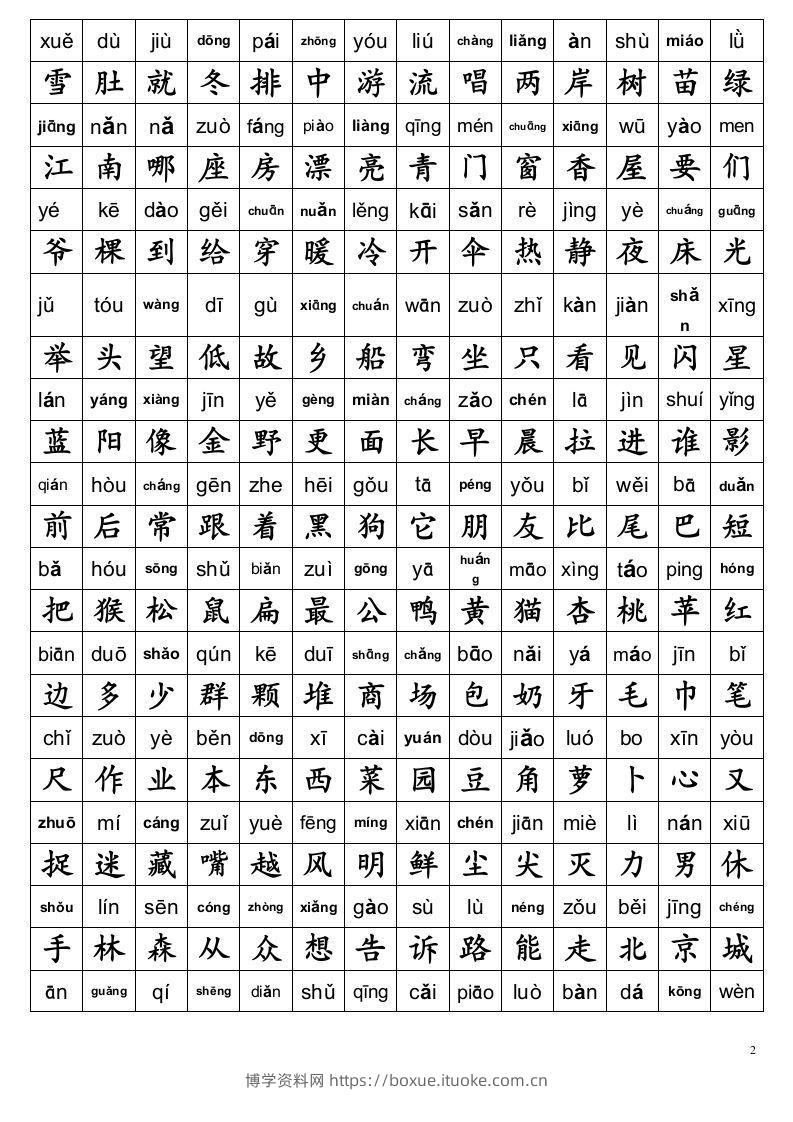 xuě dù jiù dōng pái zhōng yóu liú chàng liǎng àn shù miáo lǜ
雪 肚 就 冬 排 中 游 流 唱 两 岸 树 苗 绿
jiāng nǎn nǎ zuò fáng piào liàng qīng mén chuāng xiāng wū yào men
江 南 哪 座 房 漂 亮 青 门 窗 香 屋 要 们
yé kē dào gěi chuān nuǎn lěng kāi sǎn rè jìng yè chuáng guāng
爷 棵 到 给 穿 暖 冷 开 伞 热 静 夜 床 光
jǔ tóu wàng dī gù xiāng chuán wān zuò zhǐ kàn jiàn shǎn xīng
举 头 望 低 故 乡 船 弯 坐 只 看 见 闪 星
lán yáng xiàng jīn yě gèng miàn cháng zǎo chén lā jìn shuí yǐng
蓝 阳 像 金 野 更 面 长 早 晨 拉 进 谁 影
qián hòu cháng gēn zhe hēi gǒu tā péng yǒu bǐ wěi bā duǎn
前 后 常 跟 着 黑 狗 它 朋 友 比 尾 巴 短
bǎ hóu sōng shǔ biǎn zuì gōng yā huáng māo xìng táo ping hóng
把 猴 松 鼠 扁 最 公 鸭 黄 猫 杏 桃 苹 红
biān duō shǎo qún kē duī shāng chǎng bāo nǎi yá máo jīn bǐ
边 多 少 群 颗 堆 商 场 包 奶 牙 毛 巾 笔
chǐ zuò yè běn dōng xī cài yuán dòu jiǎo luó bo xīn yòu
尺 作 业 本 东 西 菜 园 豆 角 萝 卜 心 又
zhuō mí cáng zuǐ yuè fēng míng xiān chén jiān miè lì nán xiū
捉 迷 藏 嘴 越 风 明 鲜 尘 尖 灭 力 男 休
shǒu lín sēn cóng zhòng xiǎng gào sù lù néng zǒu běi jīng chéng
手 林 森 从 众 想 告 诉 路 能 走 北 京 城
ān guǎng qí shēng diǎn shǔ qīng cǎi piāo luò bàn dá kōng wèn
2
博学资料网 https://boxue.ituoke.com.cn